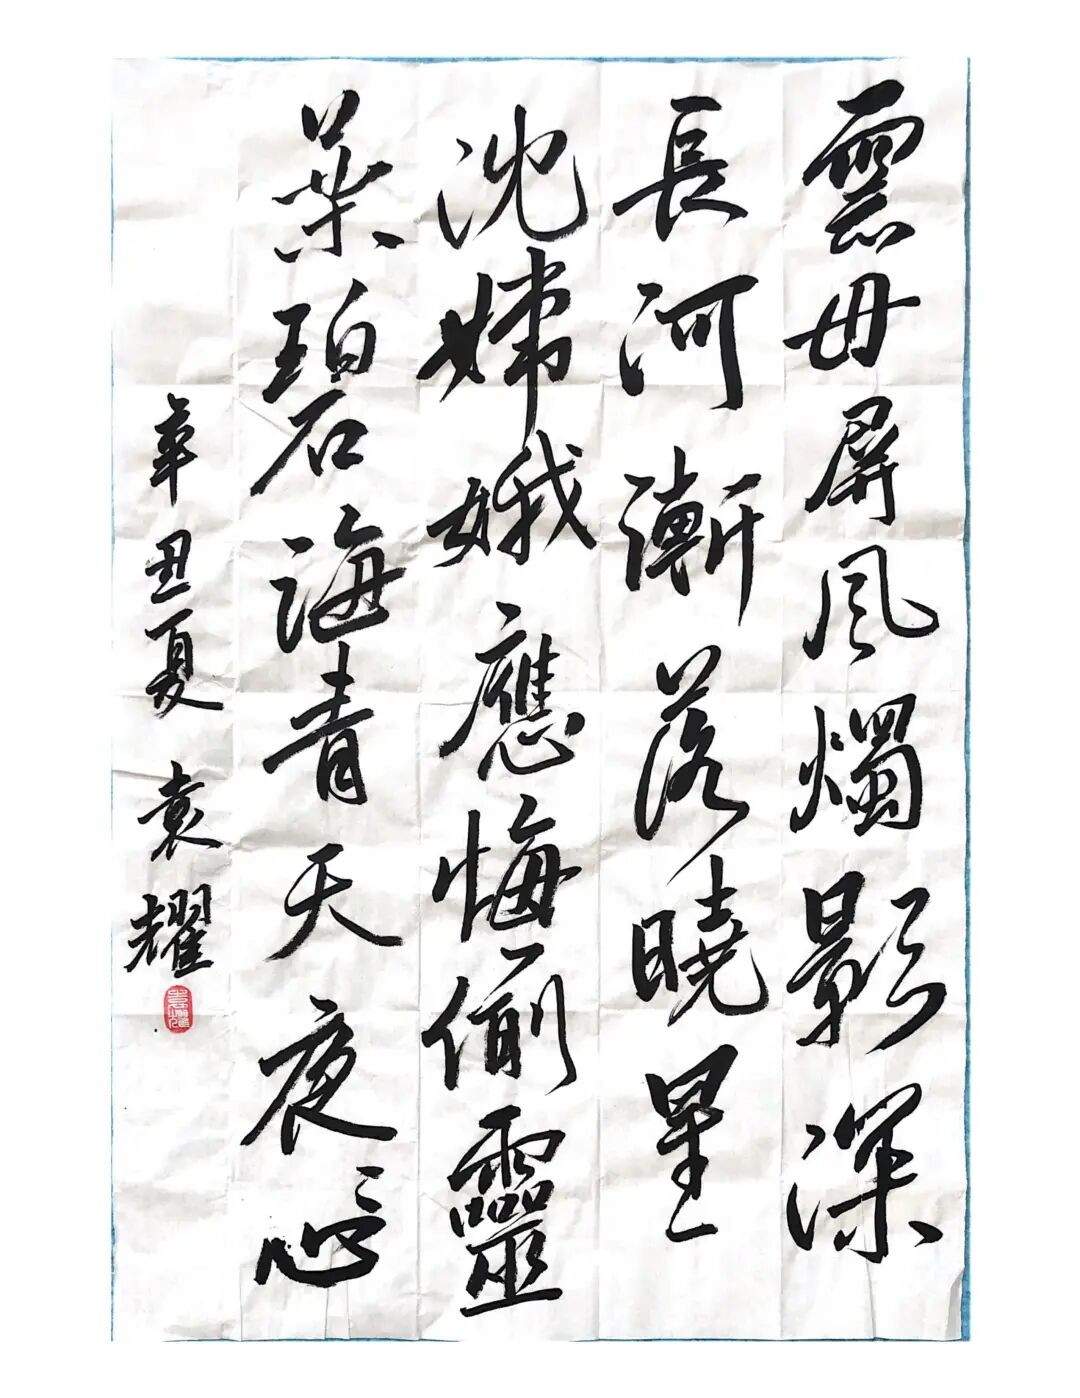 雲母屏風燭影深
長河漸落曉星
沈嫦娥應悔偷靈
藥碧海青天夜心
辛丑夏 袁耀
袁耀